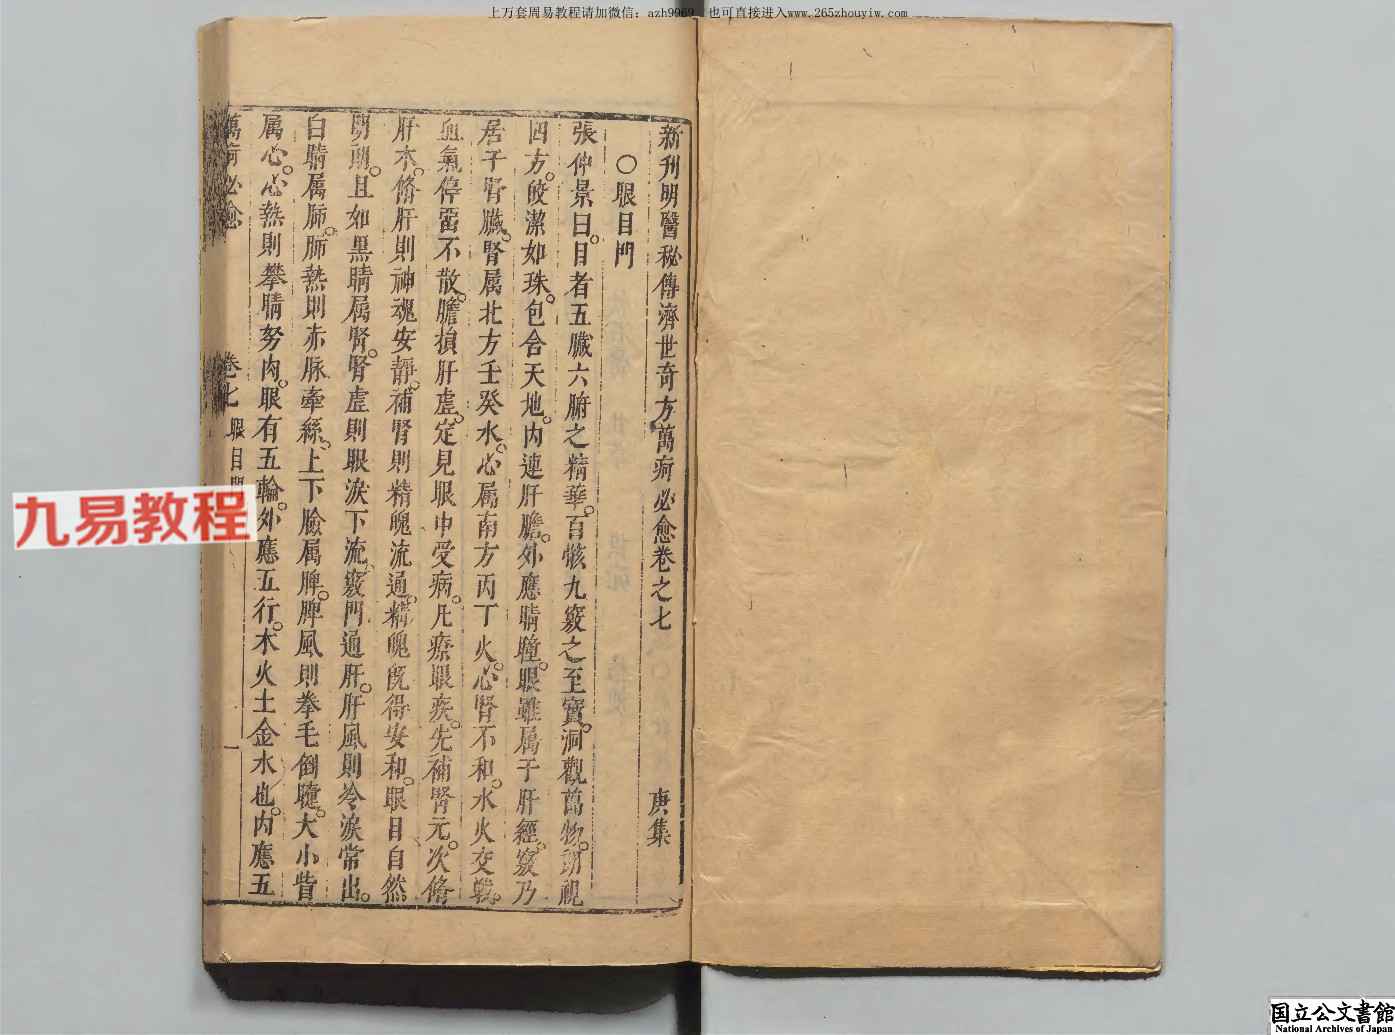 上万套周易教程请加微信：azh9969，也可直接进入www.265zhouyiw.com
新刋明醫秘傳濟世奇方萬病必愈卷之七 庚集
○眼目門
張仲景曰。目者五臟六腑之精華。百骸九竅之至寶。洞觀萬物。朗視
四方。皎潔如珠。包含天地。内連肝膽。外應睛瞳。眼雖属于肝經。竅乃
居于腎臟。腎属北方壬癸水。心属南方丙丁火。心腎不和。水火交戰。
血氣停留不散。膽損肝虚。定見眼中受病。凡療眼疾。先補腎元。次脩
肝木。脩肝則神魂安靜。補腎則精魄流通。精魄既得安和。眼目自然
明朗。且如黒睛属腎。腎虚則眼淚下流。竅門通肝。肝風則冷淚常出。
白睛属肺。肺熱則赤脉牽絲。上下臉属脾。脾風則拳毛倒睫。大小眥
属心。心熱則攀睛努肉。眼有五輪。外應五行。木火土金水也。内應五
萬病必愈 卷七 眼目門 一
九易教程
国立公文書館
National Archives of Japan